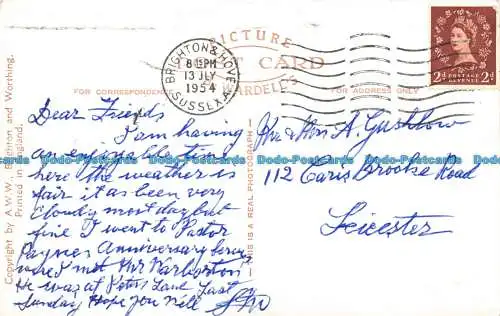 PICTURE
POST CARD
BRIGHTON & HOVE
8 15 PM
13 JLY
1954
SUSSEX
2d POSTAGE REVENUE 2d
FOR CORRESPONDENCE
FOR ADDRESS ONLY
Copyright by A.W.W. Brighton and Worthing.
Printed in England.
THIS IS A REAL PHOTOGRAPH
Dear Friends
I am having
an enjoyable time
here the weather is
fair it as been very
Cloudy most day but
fine I went to Pastor
Paynes Anniversary
were I met Mr Warburton
He was at Last
Sunday Hope you Well
Mrs & Mr A.
112 Caris Brooke Road
Leicester
Dodo-Postcards Dodo-Postcards Dodo-Postcards Dodo-Postcards